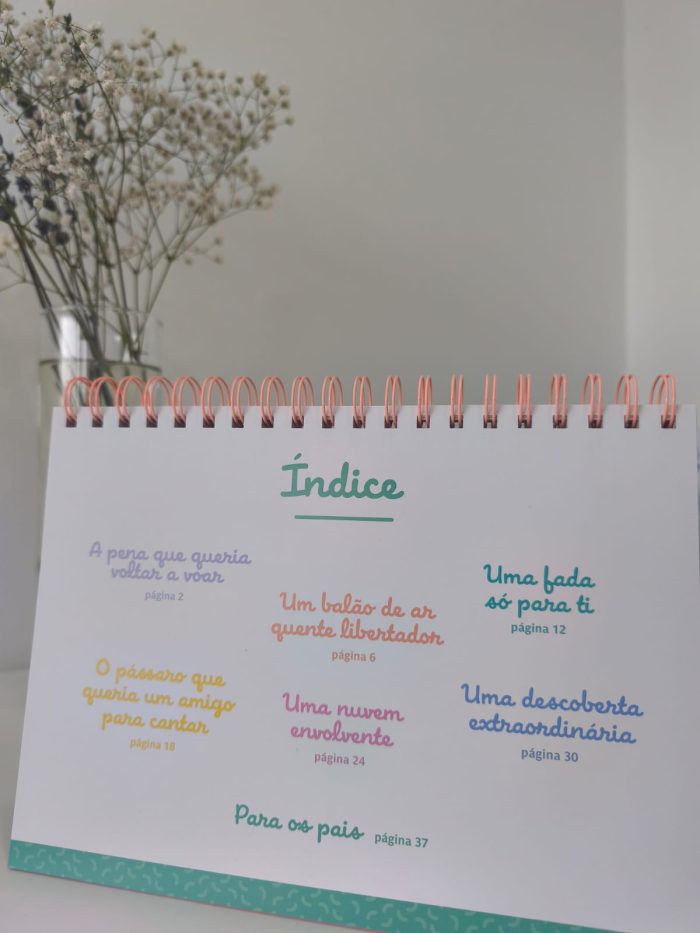 Índice
A pena que queria
voltar a voar
página 2
Um balão de ar
quente libertador
página 6
Uma fada
só para ti
página 12
O pássaro que
queria um amigo
para cantar
página 18
Uma nuvem
envolvente
página 24
Uma descoberta
extraordinária
página 30
Para os pais página 37